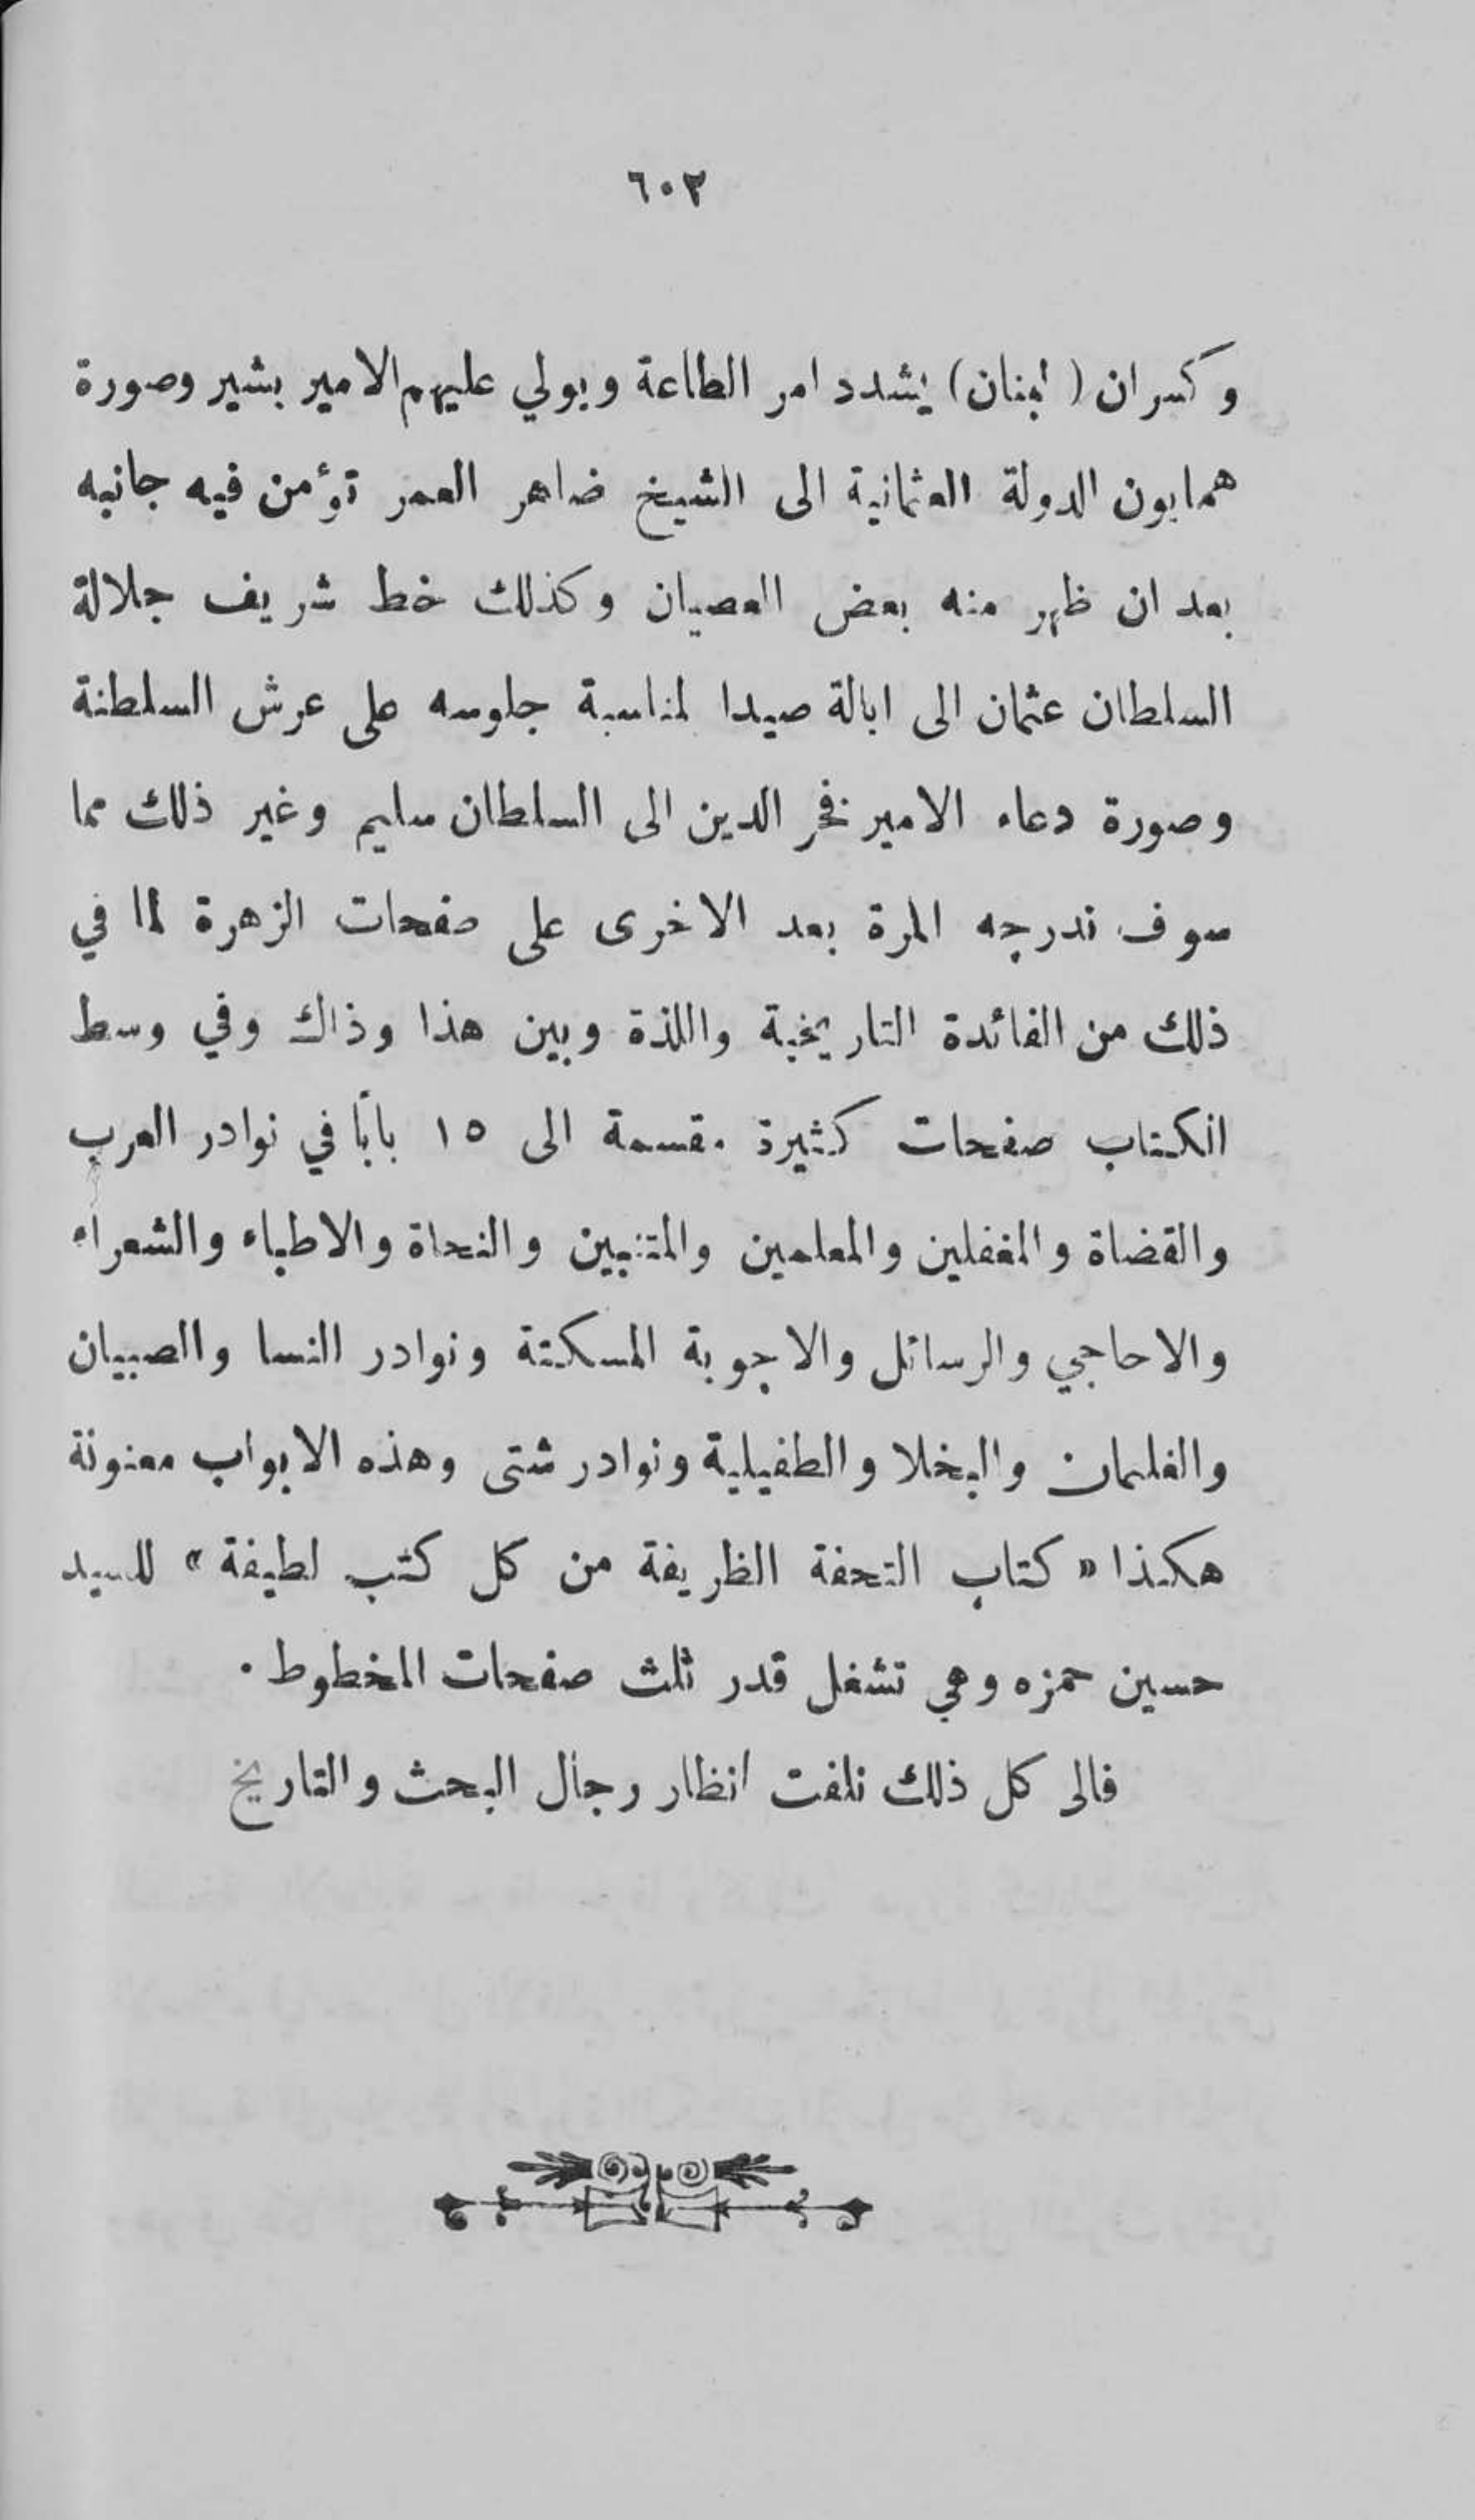 ٦٠٢
وكسران ( لبنان ) يشدد امر الطاعة ويولي عليهم الامير بشير وصورة
همايون الدولة العثمانية الى الشيخ ضاهر العمر تؤمن فيه جانبه
بعد ان ظهر منه بعض العصيان وكذلك خط شريف جلالة
السلطان عثمان الى ايالة صيدا لمناسبة جلوسه على عرش السلطنة
وصورة دعاء الامير فخر الدين الى السلطان سليم وغير ذلك مما
سوف ندرجه المرة بعد الاخرى على صفحات الزهرة لما في
ذلك من الفائدة التاريخية واللذة وبين هذا وذاك وفي وسط
الكتاب صفحات كثيرة مقسمة الى ١٥ بابًا في نوادر العرب
والقضاة والمغفلين والمعلمين والمتنبيين والنحاة والاطباء والشعراء
والاحاجي والرسائل والاجوبة المسكتة ونوادر النسا والصبيان
والغلمان والبخلا والطفيلية ونوادر شتى وهذه الابواب معنونة
هكذا « كتاب التحفة الظريفة من كل كتب لطيفة » للسيد
حسين حمزه وهي تشغل قدر ثلث صفحات المخطوط .
فالى كل ذلك نلفت انظار رجال البحث والتاريخ